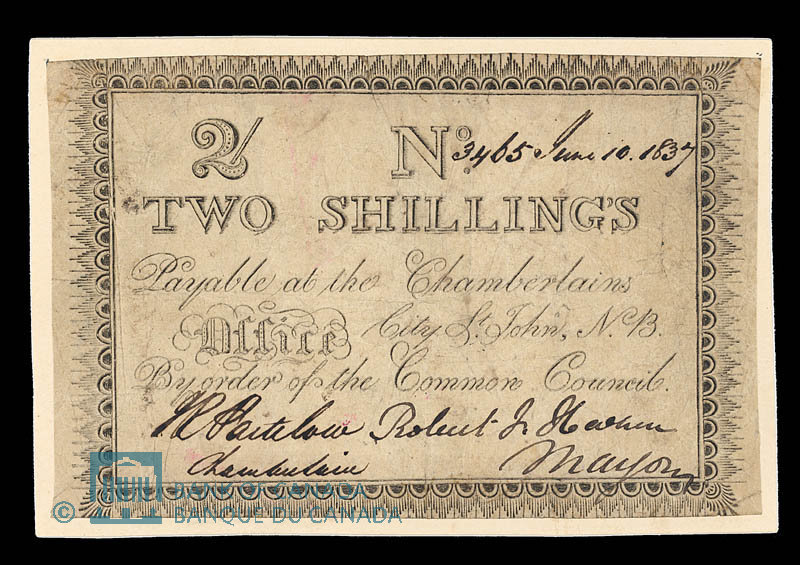 2/ No. 3465 June 10. 1837
TWO SHILLING'S
Payable at the Chamberlains
Office City St. John, N.B.
By order of the Common Council.
Partelow Robert
Chamberlain Mayor
© BANK OF CANADA
BANQUE DU CANADA